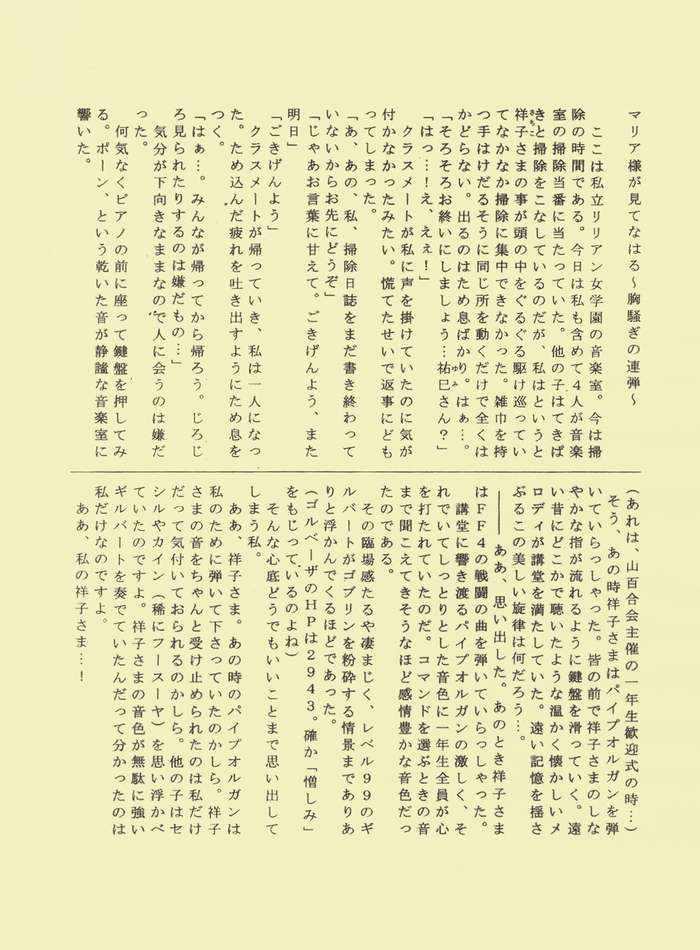 マリア様が見てなはる～胸騒ぎの連弾～
ここは私立リリアン女学園の音楽室。今は掃
除の時間である。今日は私も含めて４人が音楽
室の掃除当番に当たっていた。他の子はてきぱ
きと掃除をこなしているのだが、私はというと
祥子さまの事が頭の中をぐるぐる駆け巡ってい
てなかなか掃除に集中できなかった。雑巾を持
つ手はけだるそうに同じ所を動くだけで全くは
かどらない。出るのはため息ばかり。はぁ…。
「そろそろお終いにしましょう…祐巳さん？」
「はっ…！え、えぇ！」
クラスメートが私に声を掛けていたのに気が
付かなかったみたい。慌てたせいで返事にども
ってしまった。
「あ、あの、私、掃除日誌をまだ書き終わって
いないからお先にどうぞ」
「じゃあお言葉に甘えて。ごきげんよう、また
明日」
「ごきげんよう」
クラスメートが帰っていき、私は一人になっ
た。ため込んだ疲れを吐き出すようにため息を
つく。
「はぁ…。みんなが帰ってから帰ろう。じろじ
ろ見られたりするのは嫌だもの…」
気分が下向きなままなので人に会うのは嫌だ
った。
何気なくピアノの前に座って鍵盤を押してみ
る。ポーン、という乾いた音が静謐な音楽室に
響いた。
（あれは、山百合会主催の一年生歓迎式の時…）
そう、あの時祥子さまはパイプオルガンを弾
いていらっしゃった。皆の前で祥子さまのしな
やかな指が流れるように鍵盤を滑っていく。遠
い昔にどこかで聴いたような温かく懐かしいメ
ロディが講堂を満たしていた。遠い記憶を揺さ
ぶるこの美しい旋律は何だろう…。
――― ああ、思い出した。あのとき祥子さま
はＦＦ４の戦闘の曲を弾いていらっしゃった。
講堂に響き渡るパイプオルガンの激しく、そ
れでいてしっとりとした音色に一年生全員が心
を打たれていたのだ。コマンドを選ぶときの音
まで聞こえてきそうなほど感情豊かな音色だっ
たのである。
その臨場感たるや凄まじく、レベル９９のギ
ルバートがゴブリンを粉砕する情景までありあ
りと浮かんでくるほどであった。
（ゴルベーザのＨＰは２９４３。確か「憎しみ」
をもじっているのよね）
そんな心底どうでもいいことまで思い出して
しまう私。
ああ、祥子さま。あの時のパイプオルガンは
私のために弾いて下さっていたのかしら。祥子
さまの音をちゃんと受け止められたのは私だけ
だって気付いておられるのかしら。他の子はセ
シルやカイン（稀にフースーヤ）を思い浮かべ
ていたのですよ。祥子さまの音色が無駄に強い
ギルバートを奏でていたんだって分かったのは
私だけなのですよ。
ああ、私の祥子さま…！